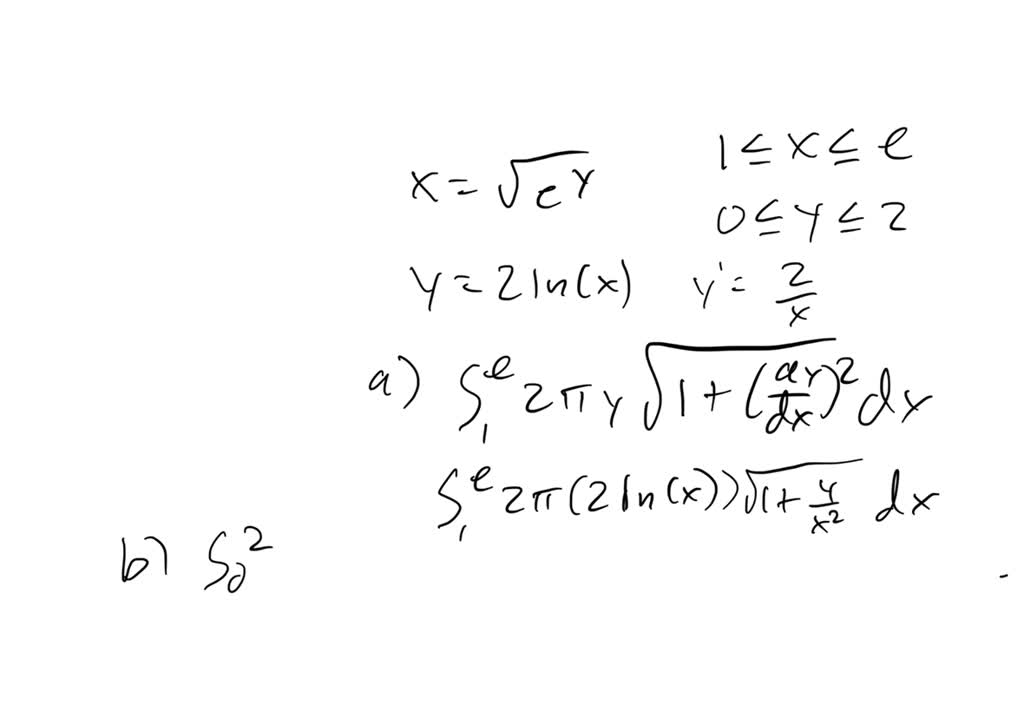 x = √e^y 1 ≤ x ≤ e
0 ≤ y ≤ 2
y = 2 ln(x) y' = 2/x
a) ∫₁^e 2πy √(1 + (dy/dx)²) dx
∫₁^e 2π(2 ln(x)) √(1 + 4/x²) dx
b) ∫₀²